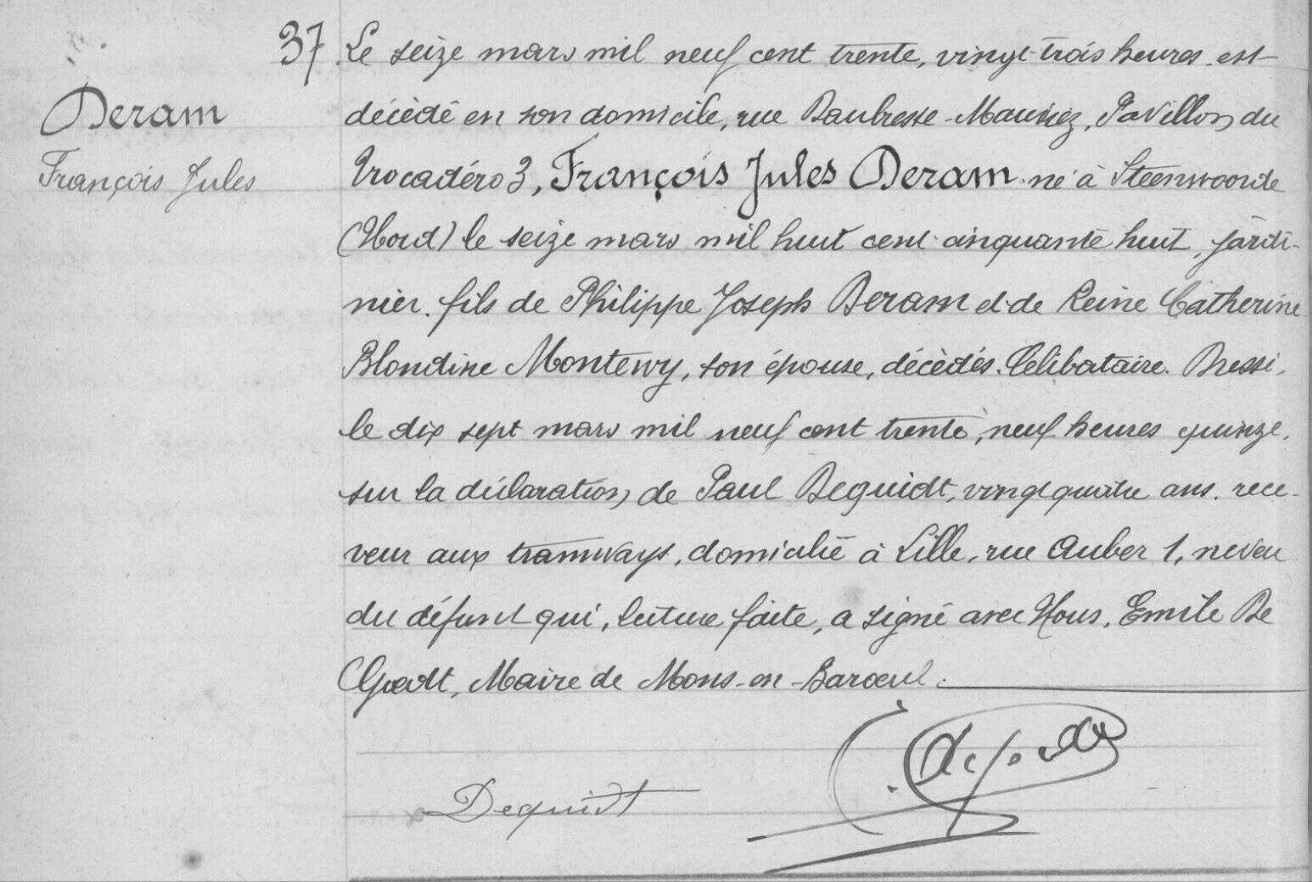 37
Deram
François Jules
Le seize mars mil neuf cent trente, vingt-trois heures est
décédé en son domicile, rue Daubresse-Mauviez, Pavillon du
Trocadéro 3, François Jules Deram né à Steenvoorde
(Nord) le seize mars mil huit cent cinquante huit, jardi-
nier. fils de Philippe Joseph Deram et de Reine Catherine
Blondine, son épouse, décédés. Célibataire. Dressé,
le dix sept mars mil neuf cent trente, neuf heures quinze,
sur la déclaration de Paul Dequidt, vingt quatre ans. rece-
veur aux tramways, domicilié à Lille, rue Auber 1, neveu
du défunt qui, lecture faite, a signé avec Nous, Emile De
Goedt, Maire de Mons-en-Baroeul.
Dequidt